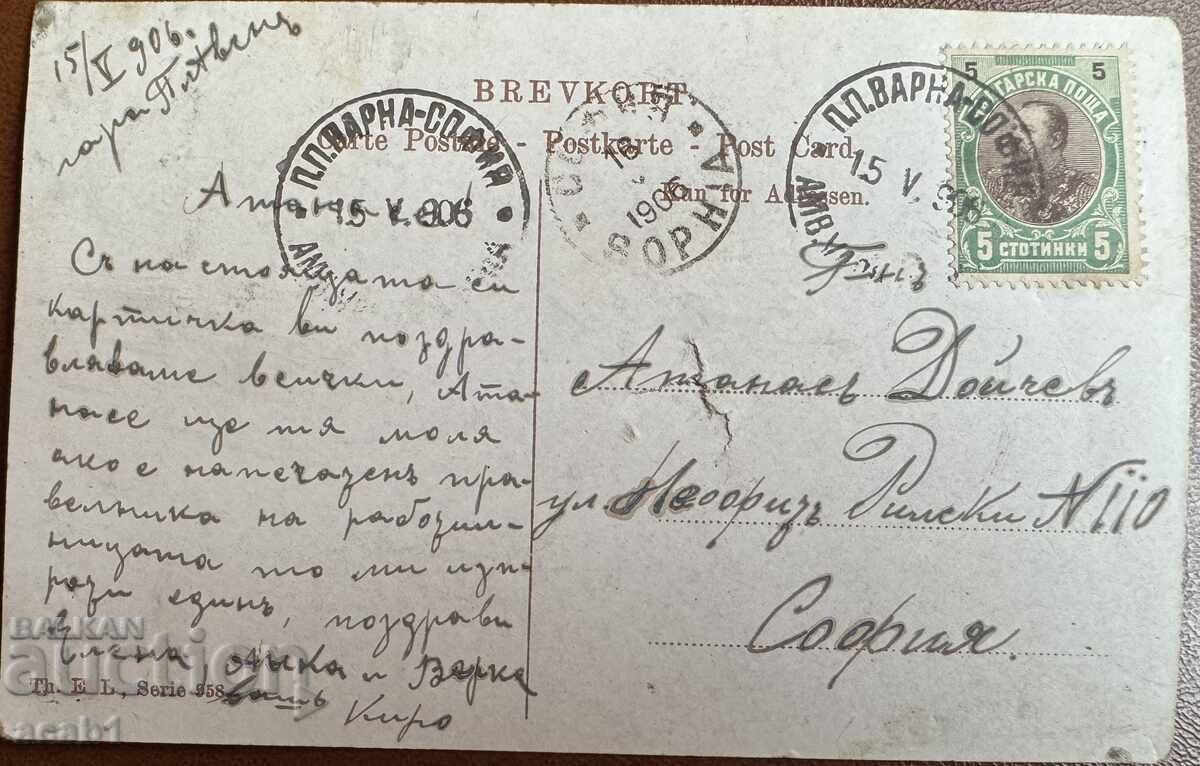 15/V 906.
гара Плѣвенъ
BREVKORT.
Carte Postale - Postkarte - Post Card.
Kun for Adressen.
П.П.ВАРНА-СОФИЯ
15 V. 906
СОФИЯ
1906
П.П.ВАРНА-СОФИЯ
15 V. 906
5 5
БЪЛГАРСКА ПОЩА
5 СТОТИНКИ 5
Атанасе!
Съ настоящата си
картичка ви поздра-
вляваме всички, Ата-
насе ще тя моля
ако е напечазенъ пра-
велника на работил-
ницата то ми изп-
рати единъ, поздрави
Елена, Анка и Варка
вашъ
Киро
Г-нъ
Атанасъ Дойчевъ
ул. Неофитъ Рилски N 110
София.
Th. E L., Serie 958
BALKAN
auction
acab1